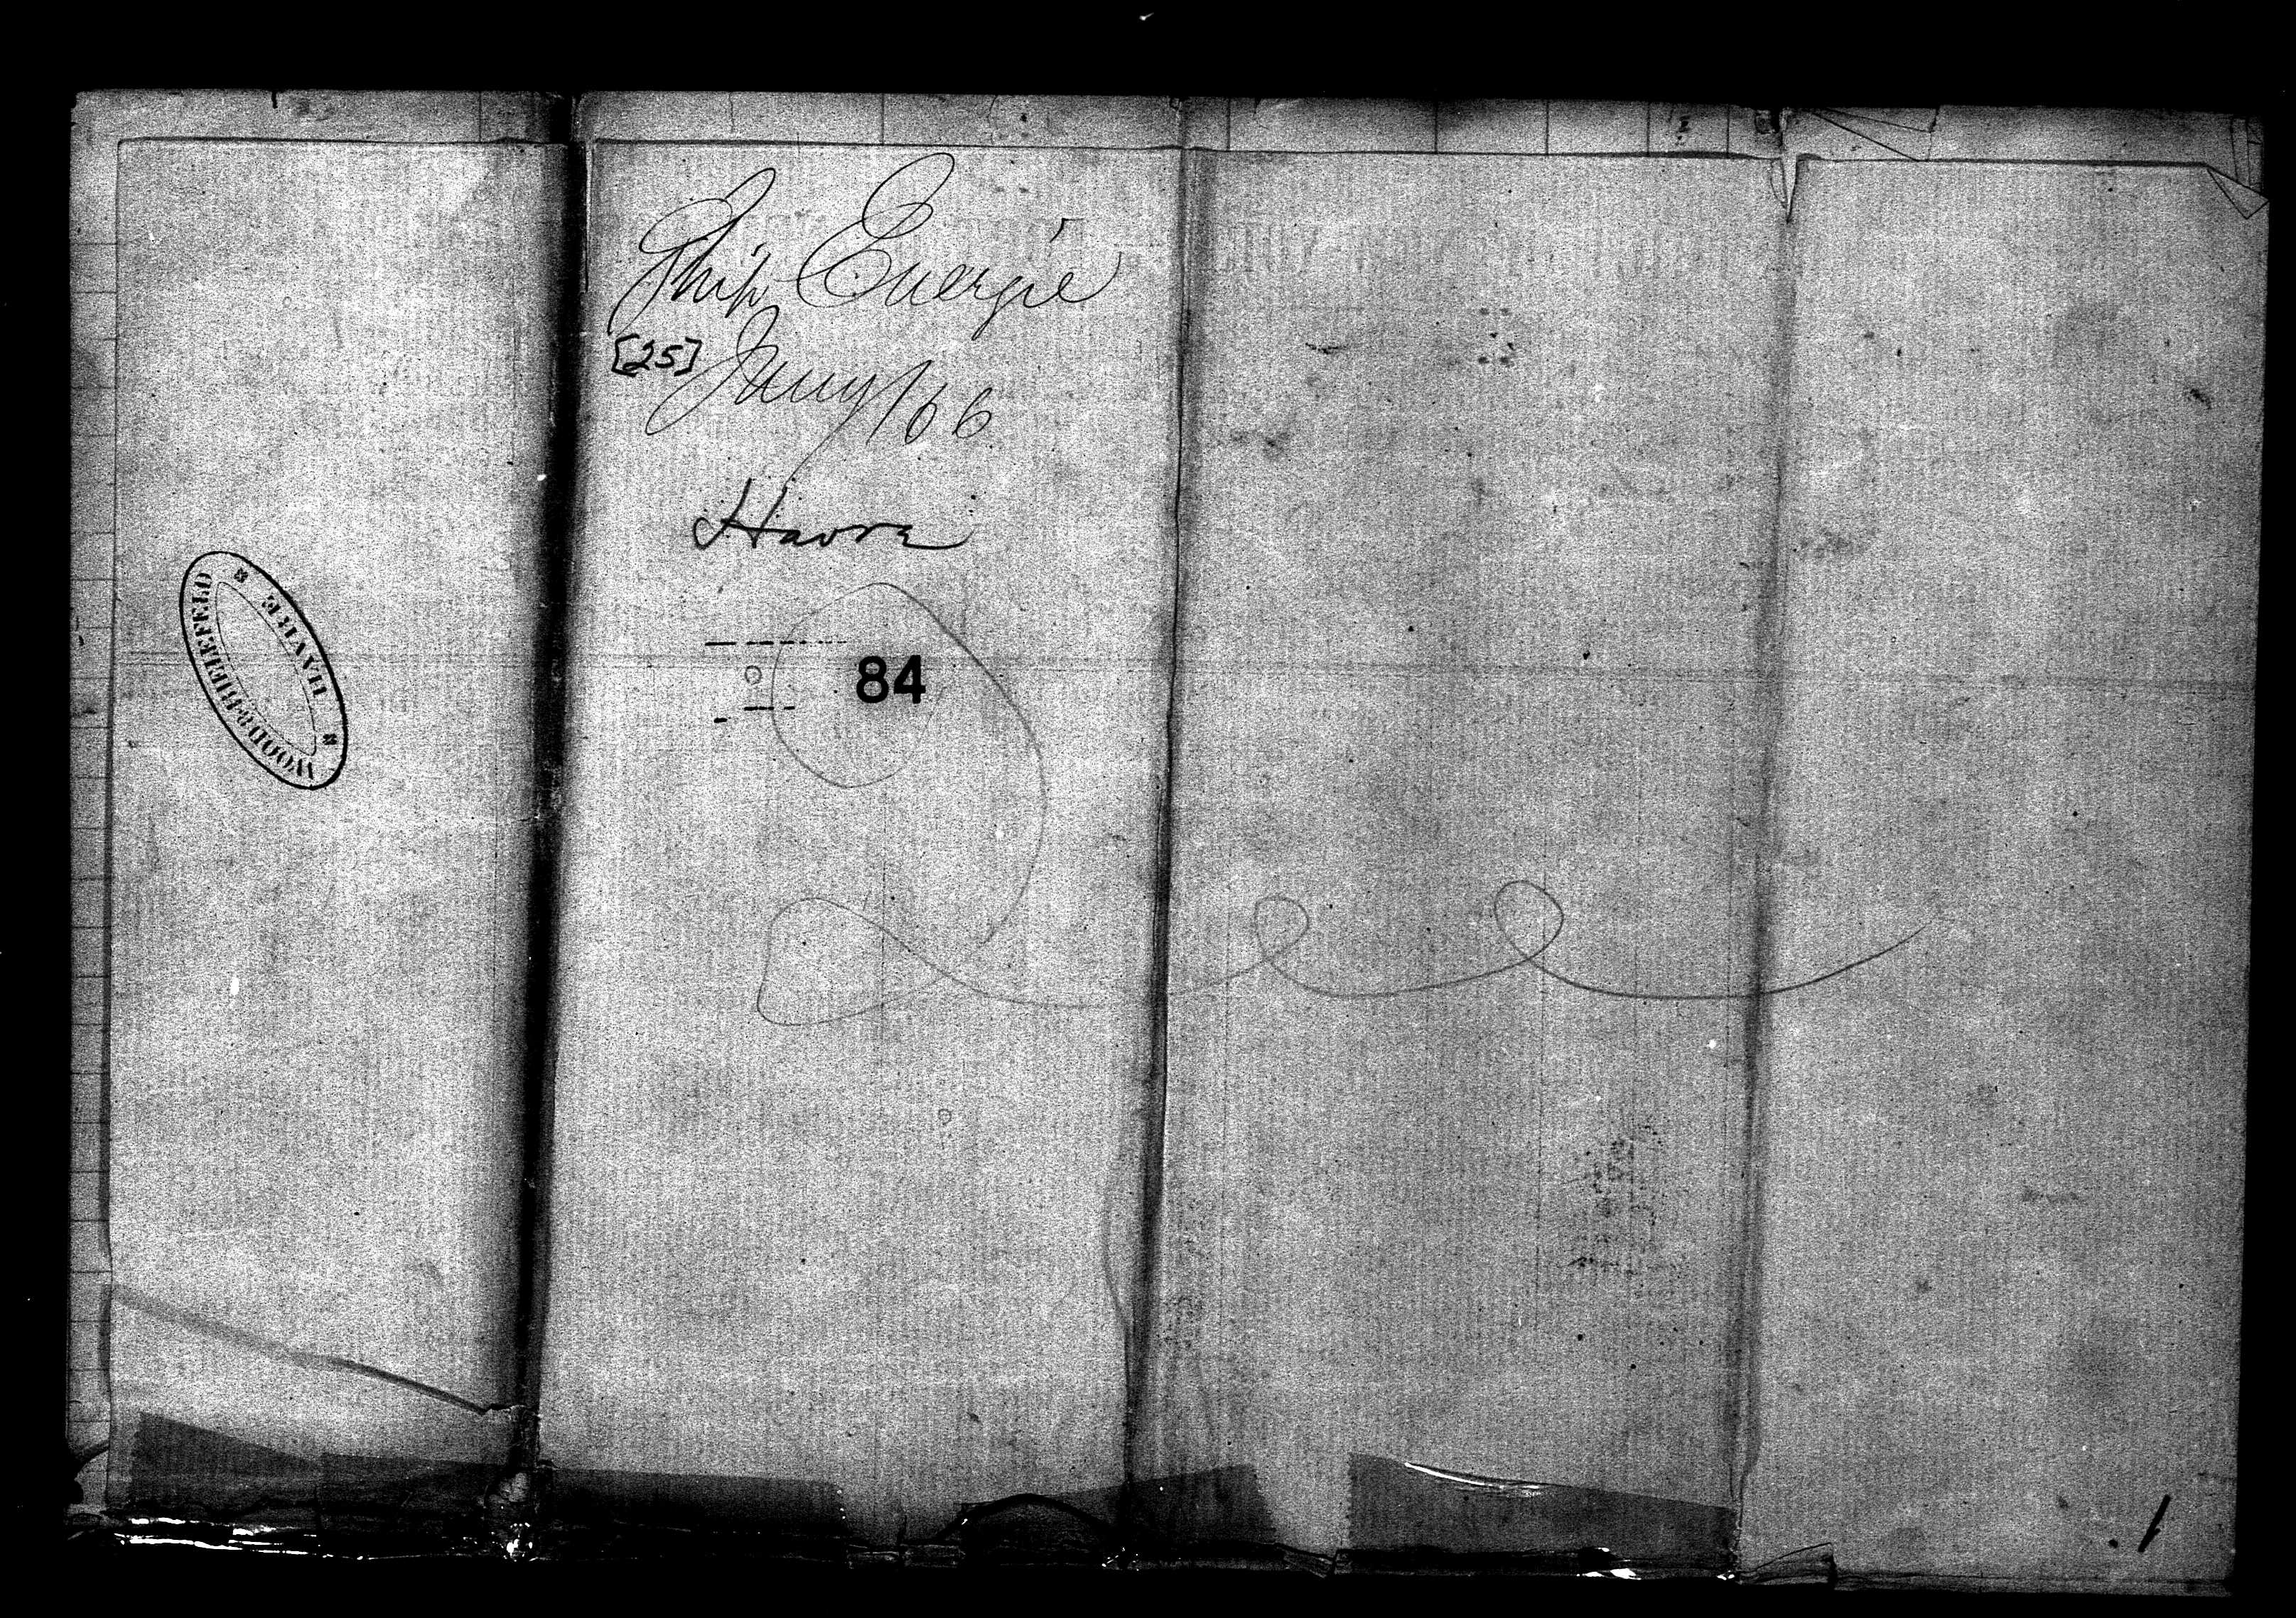 Ship Energie
[25] Jany 1 66
Havre
84
WOOD & BIELEFELD
* HAVRE *